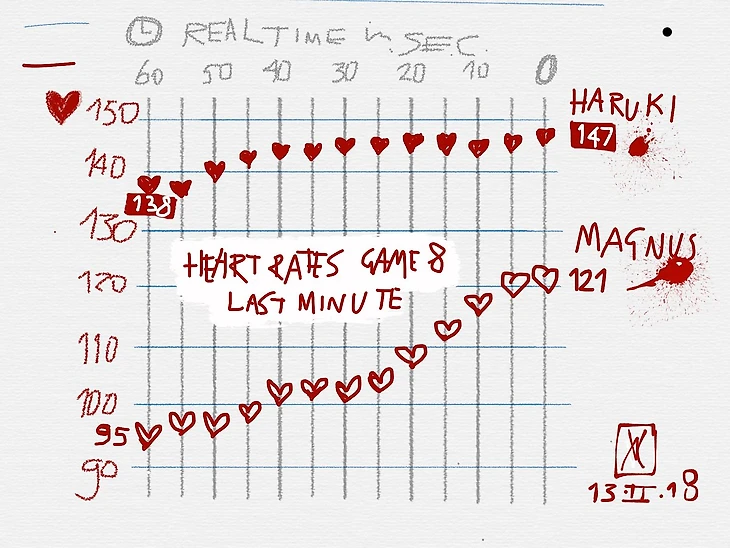 REALTIME in SEC.
60 50 40 30 20 10 0
150
140
130
120
110
100
90
HARUKI
147
138
MAGNUS
121
HEART RATES GAME 8
LAST MINUTE
95
13.II.18